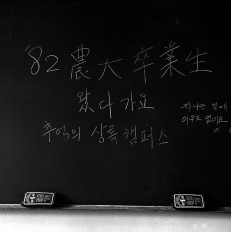 '82 農大 卒業生
왔다 가요
추억의 상록 캠퍼스
지나는 길에